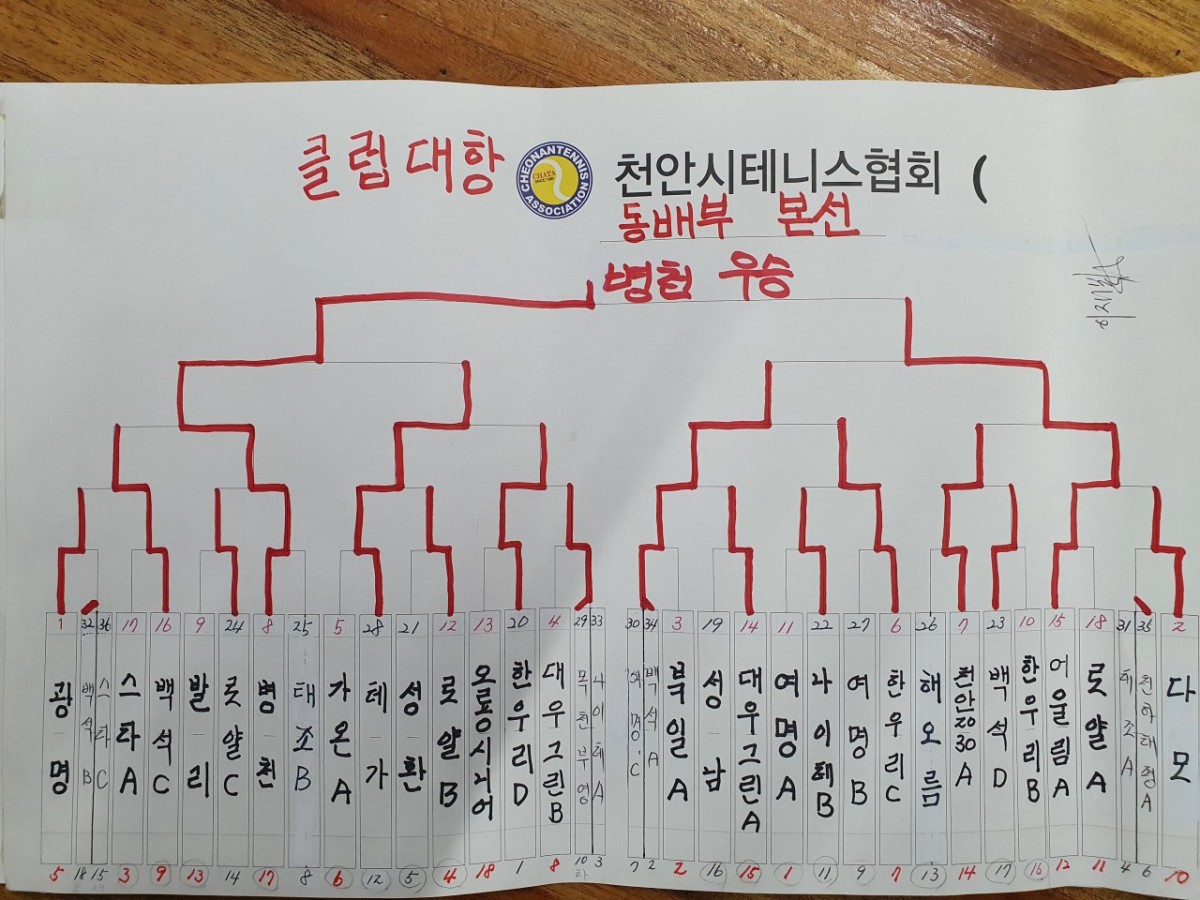 클럽대항 CHEONANTENNIS ASSOCIATION CHATA 천안시테니스협회 (
동배부 본선
병천 우승
1 32 36 17 16 9 24 8 25 5 28 21 12 13 20 4 29 33 30 34 3 19 14 11 22 27 6 26 7 23 10 15 18 31 35 2
광명
백석B
스타C
스타A
백석C
발리
로얄C
병천
태조B
가온A
테가
성환
로얄B
오룡시니어
한우리D
대우그린B
목천부영
나이테A
여명C
백석A
북일A
성남
대우그린A
여명A
나이테B
여명B
한우리C
해오름
천안2030A
백석D
한우리B
어울림A
로얄A
태조A
천하태평A
다모
5 18 15 3 9 13 14 17 8 6 12 5 4 18 1 8 10 3 7 2 2 16 15 1 11 9 7 13 14 17 16 12 11 4 6 10